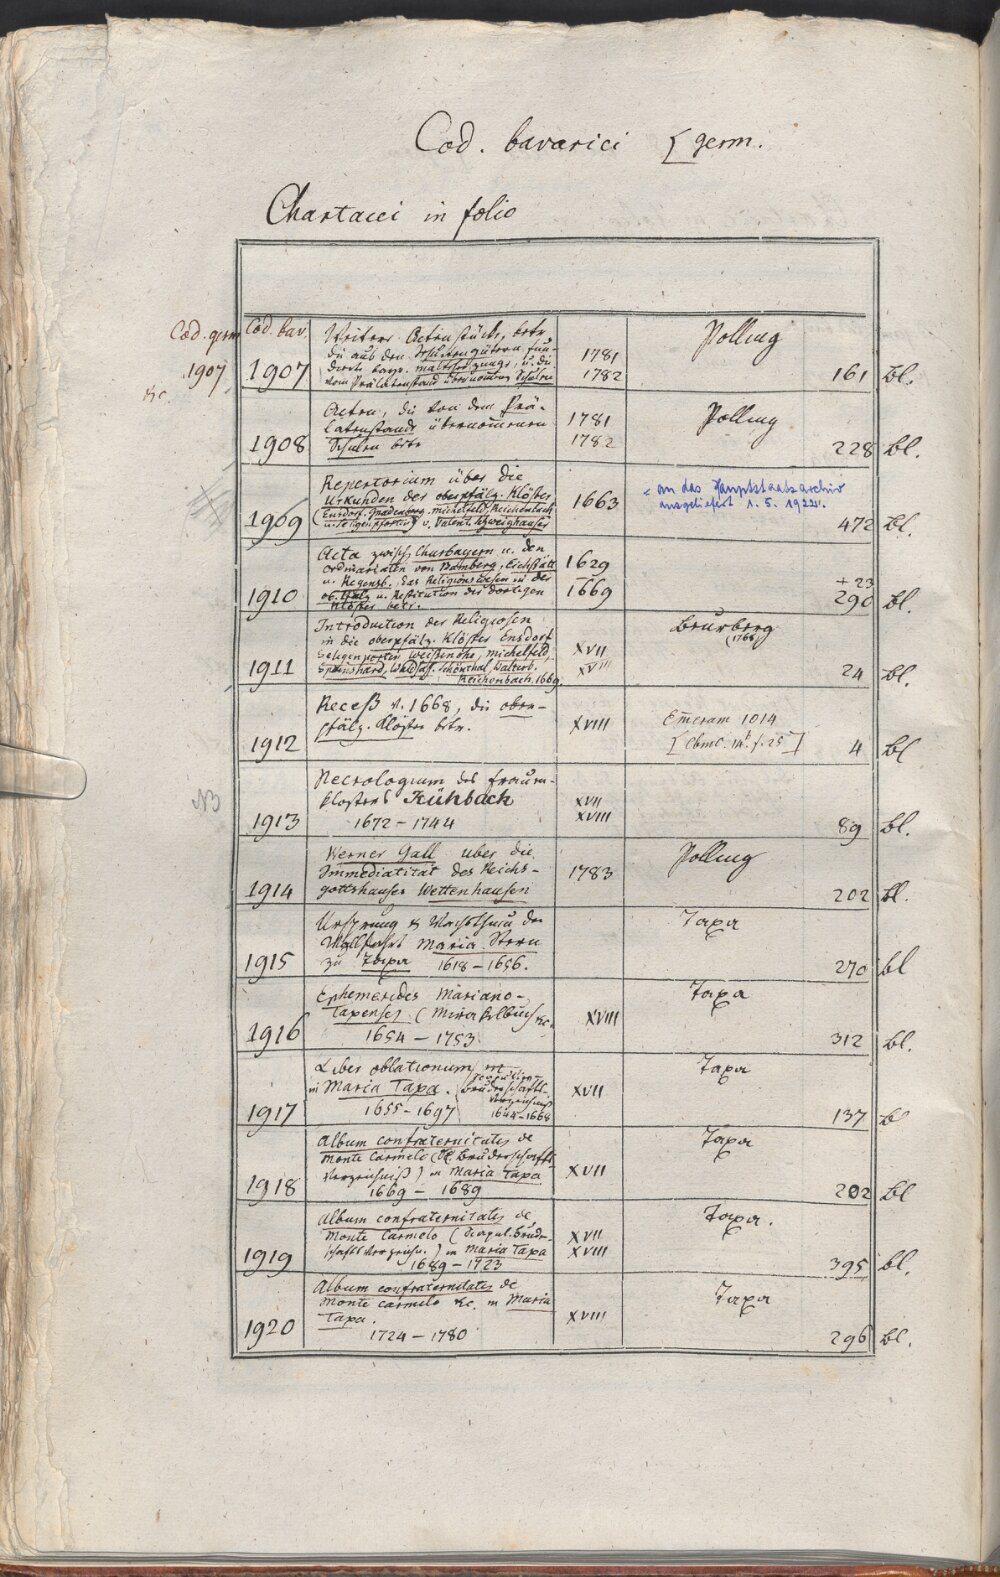 Cod. bavarici [germ.
Chartacei in folio
Cod. germ
1907
&c.
Cod bav.
1907
Weitere Actenstücke, betr.
die aus den Jesuitengütern fun-
dirte bayr. Maltheserzunge, u. die
vom Prälatenstand übernommen Schulen
1781
1782
Polling
161 Bl.
1908
Acten, die von dem Prä-
latenstande übernommenen
Schulen betr.
1781
1782
Polling
228 Bl.
1909
Repertorium über die
Urkunden der oberpfälz. Klöster
(Ensdorf, Gnadenberg, Michelfeld, Reichenbach
u. Seligenpforten) v. Valent. Schweighauser
1663
an das Hauptstaatsarchiv
ausgeliefert 1. 5. 1922.
472 Bl.
1910
Acta zwisch. Churbayern u. den
Ordinariaten von Bamberg, Eichstätt
u. Regensb., das Religionswesen in der
ob. Pfalz u. Restitution der dortigen
Klöster betr.
1629
–
1669
+ 23
290 Bl.
1911
Introduction der Religiosen
in die oberpfälz. Klöster Ensdorf
Seligenporten, Weißenohe, Michelfeld,
Speinshard, Waldsass. Schönthal, Walderb.
Reichenbach. 1669.
XVII
XVIII
(1768)
24 Bl.
1912
Receß v. 1668, die ober-
pfälz. Klöster betr.
XVIII
Emeram 1014
[Cbmc. 14b. f. 25]
4 Bl
NB
1913
Necrologium des Frauen-
klosters Kühbach
1672 – 1744
XVII
XVIII
89 Bl.
1914
Werner Gall über die
Immediatität des Reichs-
gottshauses Wettenhausen
1783
Polling
202 Bl.
1915
Ursprung & Wachsthum der
Wallfahrt Maria Stern
zu Taxa 1618 – 1656.
Taxa
270 bl
1916
Ephemerides Mariano-
Taxenses. (Mirakelbuch &c.
1654 – 1753
XVIII
Taxa
312 Bl.
1917
Liber oblationum
in Maria Taxa.
1655 – 1697
Bruderschafts-
Verzeichniß
1644–1668
XVII
Taxa
137 Bl
1918
Album confraternitatis de
Monte Carmelo (Bruderschafts
Verzeichniß) in Maria Taxa
1669 – 1689
XVII
Taxa
202 Bl
1919
Album confraternitatis de
Monte Carmelo (Scapul. Brüder-
schafts Verzeichn.) in Maria Taxa
1689 – 1723
XVII
XVIII
Taxa.
395 bl.
1920
Album confraternitatis de
Monte Carmelo &c. in Maria
Taxa.
1724 – 1780
XVIII
Taxa
296 Bl.